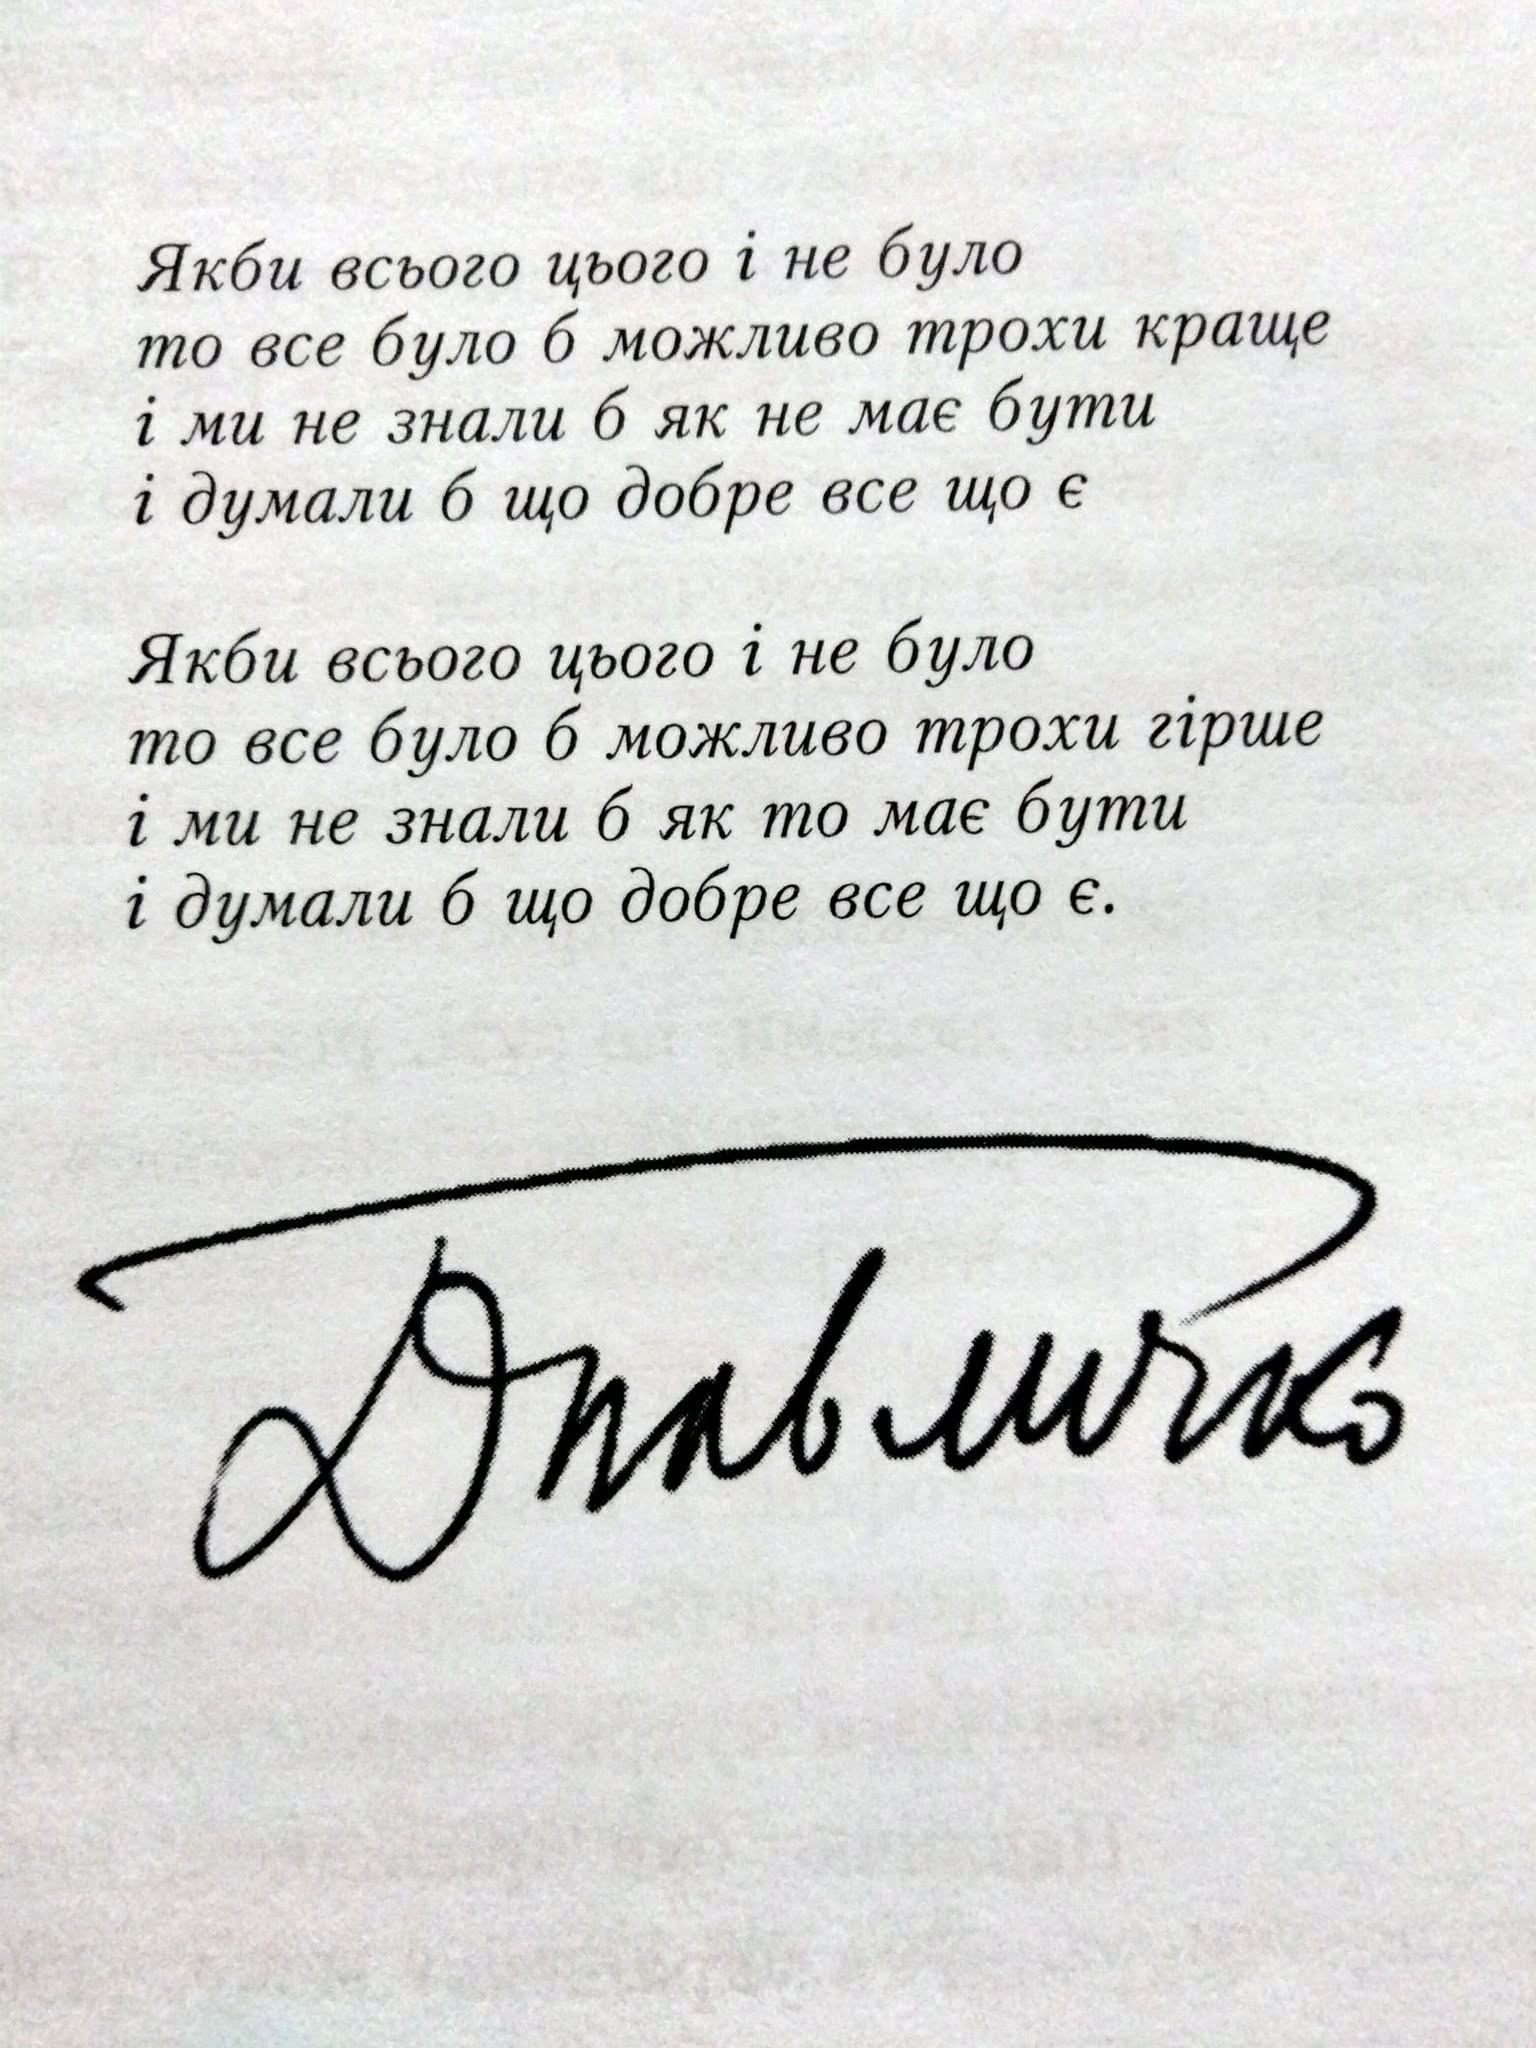 Якби всього цього і не було
то все було б можливо трохи краще
і ми не знали б як не має бути
і думали б що добре все що є
Якби всього цього і не було
то все було б можливо трохи гірше
і ми не знали б як то має бути
і думали б що добре все що є.
Дпавличко